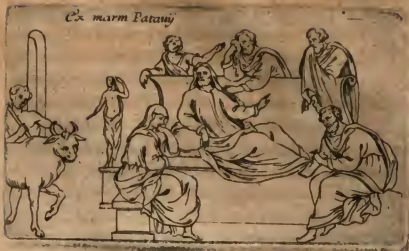 Ex marm Patauij